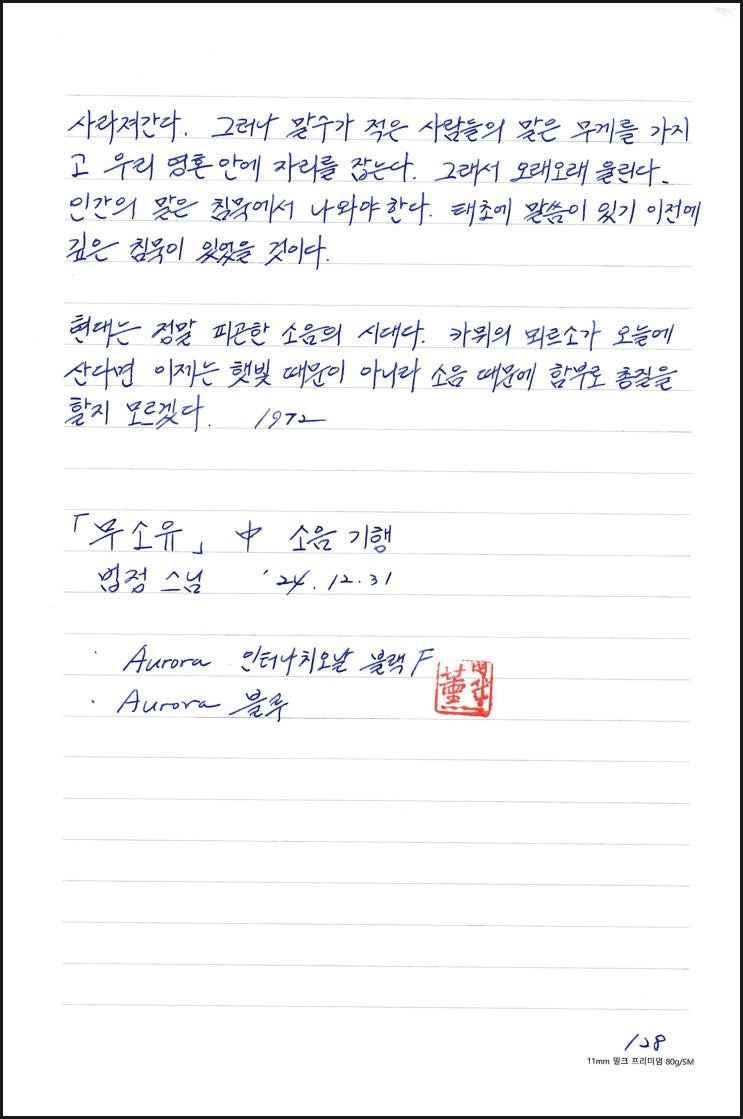 사라져간다. 그러나 말수가 적은 사람들의 말은 무게를 가지
고 우리 영혼 안에 자리를 잡는다. 그래서 오래오래 울린다.
인간의 말은 침묵에서 나와야 한다. 태초에 말씀이 있기 이전에
깊은 침묵이 있었을 것이다.
현대는 정말 피곤한 소음의 시대다. 카뮈의 뫼르소가 오늘에
산다면 이제는 햇빛 때문이 아니라 소음 때문에 함부로 총질을
할지 모르겠다. 1972
「무소유」 中 소음 기행
법정 스님 '24.12.31
· Aurora 인터나치오날 블랙 F
· Aurora 블루
128
11mm 밀크 프리미엄 80g/SM